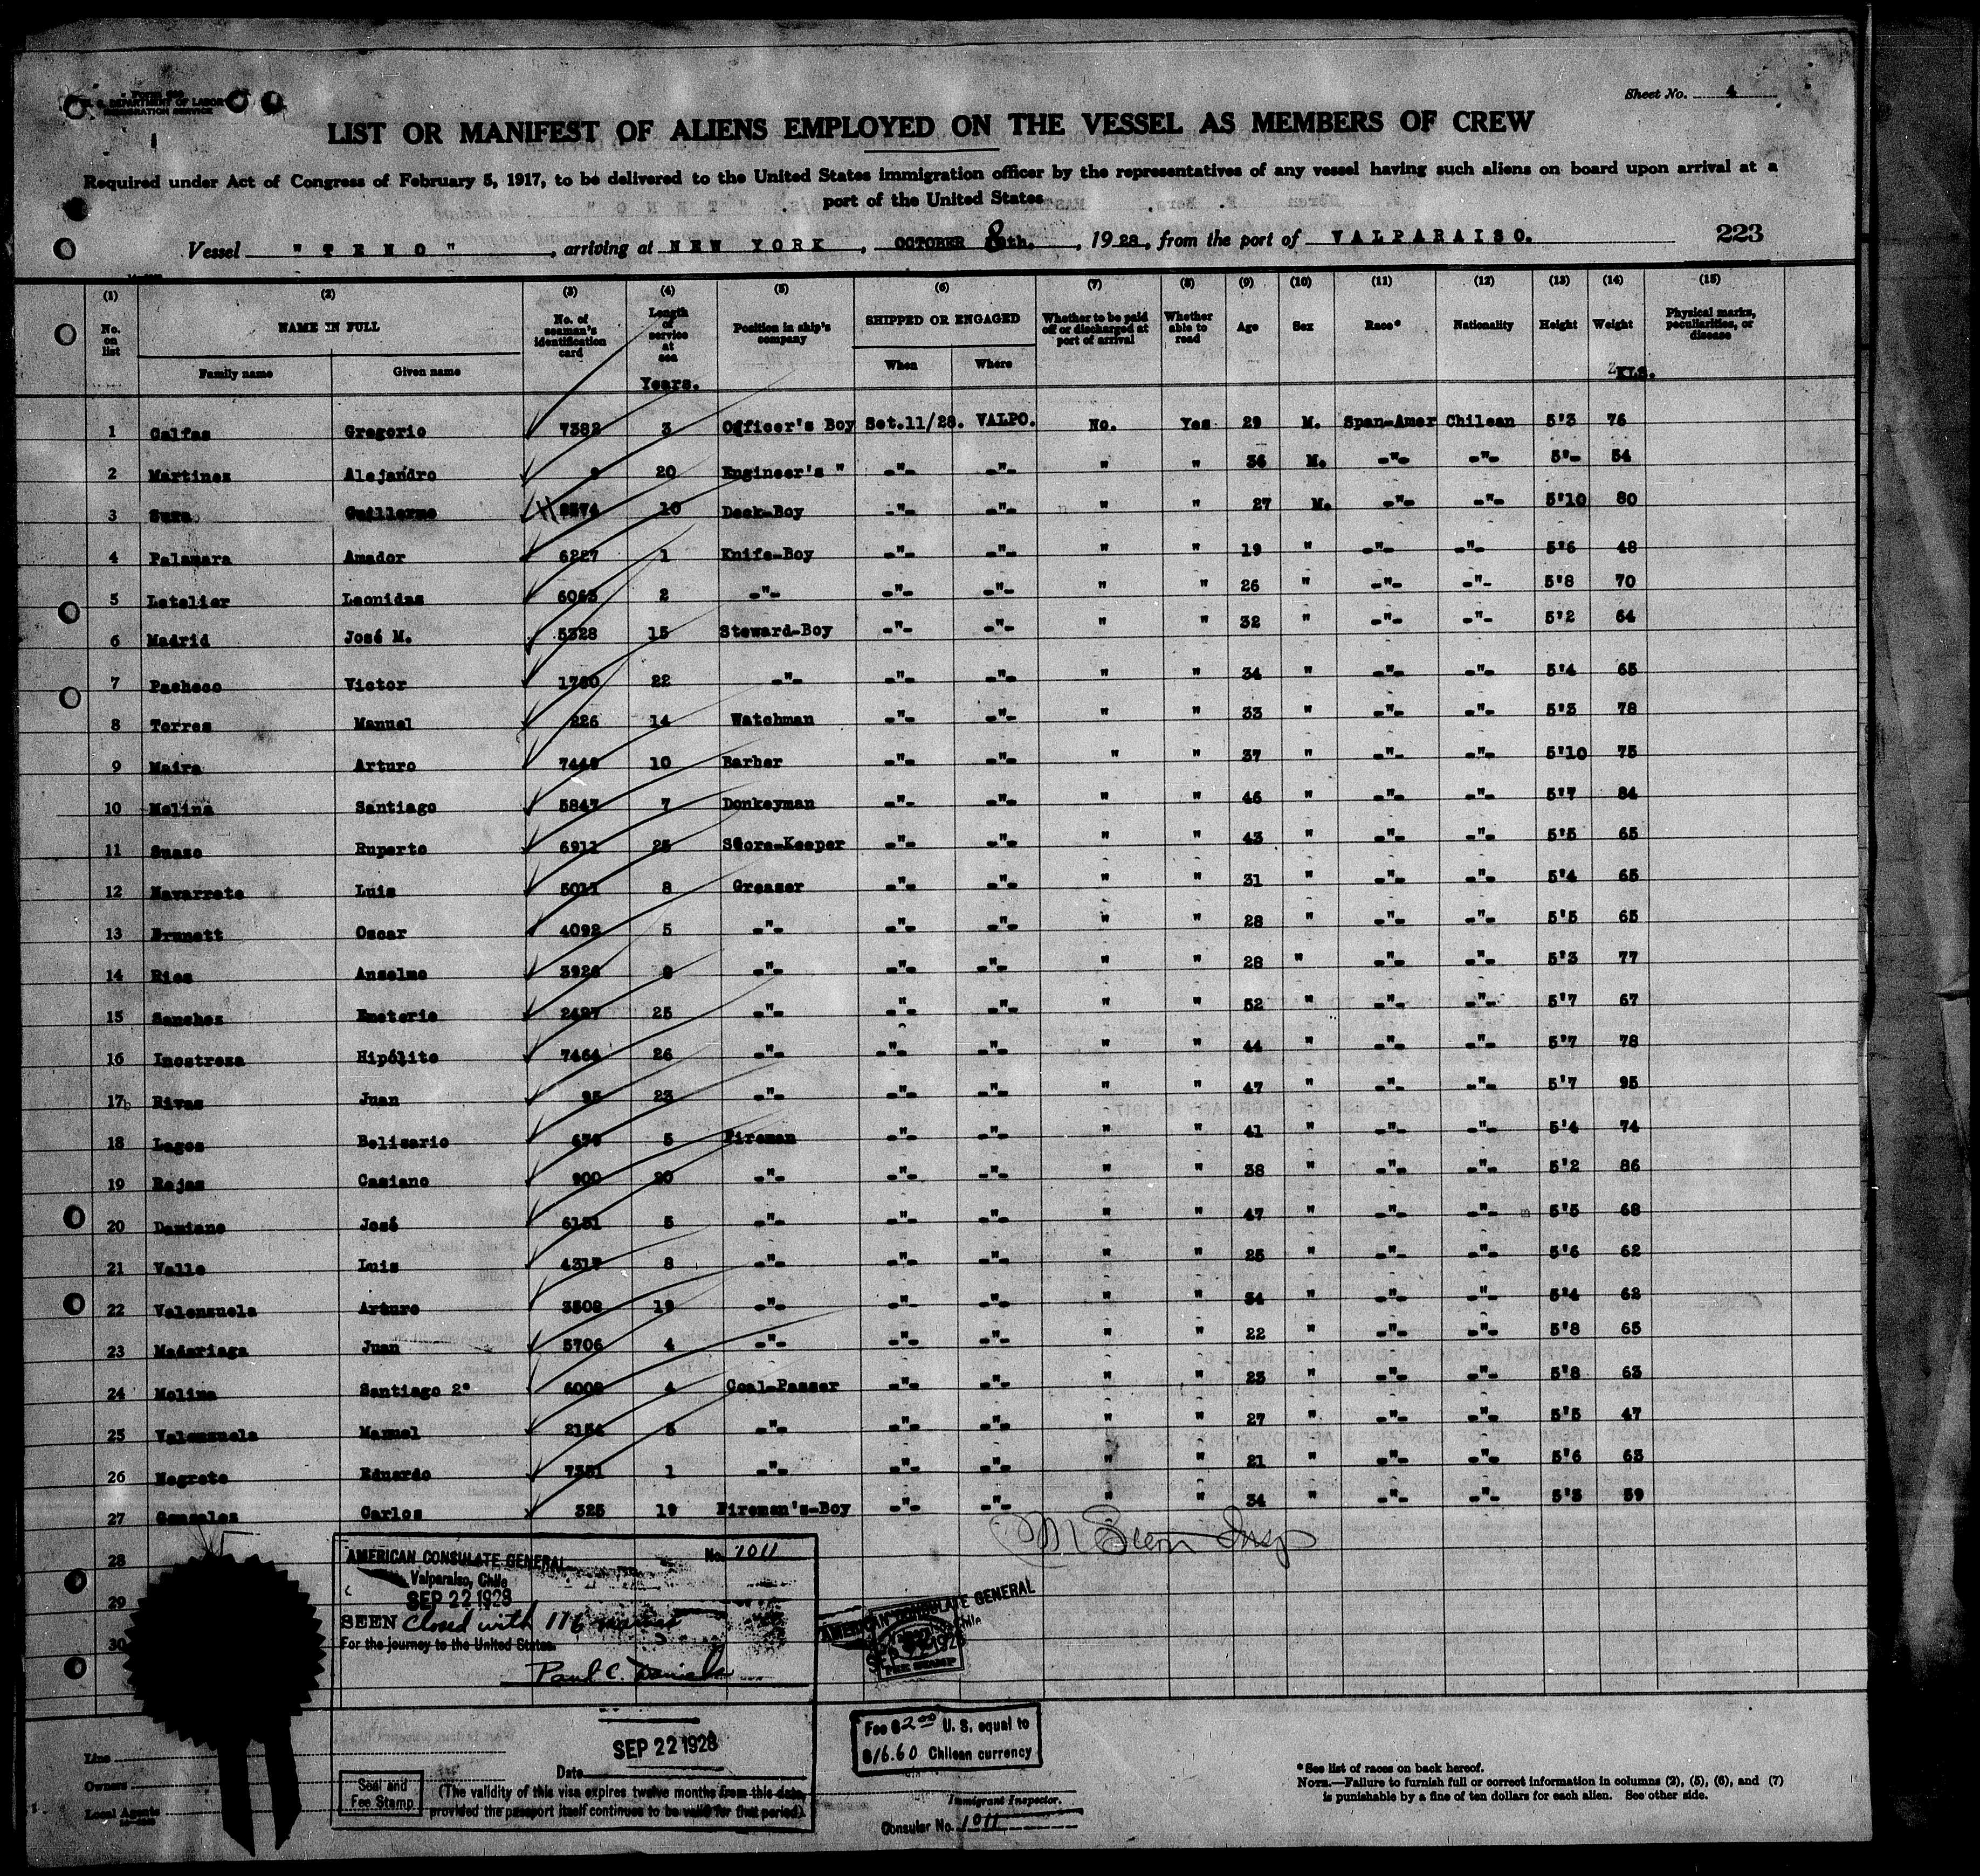 Sheet No. 4
U. S. DEPARTMENT OF LABOR
IMMIGRATION SERVICE
LIST OR MANIFEST OF ALIENS EMPLOYED ON THE VESSEL AS MEMBERS OF CREW
Required under Act of Congress of February 5, 1917, to be delivered to the United States immigration officer by the representatives of any vessel having such aliens on board upon arrival at a
port of the United States
Vessel " T E N O " , arriving at NEW YORK , OCTOBER 8th. , 1928 , from the port of VALPARAISO. 223
(1) (2) (3) (4) (5) (6) (7) (8) (9) (10) (11) (12) (13) (14) (15)
No. on list NAME IN FULL No. of seaman's identification card Length of service at sea Position in ship's company SHIPPED OR ENGAGED Whether to be paid off or discharged at port of arrival Whether able to read Age Sex Race* Nationality Height Weight Physical marks, peculiarities, or disease
Family name Given name Years. When Where KLS.
1 Calfas Gregorio 7382 3 Officer's Boy Set.11/28. VALPO. No. Yes 29 M. Span-Amer Chilean 5'3 76
2 Martinez Alejandro 20 Engineer's " -"- -"- " " 36 M. -"- -"- 5'- 54
3 Guillermo 10 Deck-Boy -"- -"- " " 27 M. -"- -"- 5'10 80
4 Palamara Amador 6227 1 Knife-Boy -"- -"- " " 19 " -"- -"- 5'6 48
5 Letelier Leonidas 6063 2 -"- -"- -"- " " 26 " -"- -"- 5'8 70
6 Madrid José M. 5328 15 Steward-Boy -"- -"- " " 32 " -"- -"- 5'2 64
7 Pacheco Victor 1760 22 -"- -"- -"- " " 34 " -"- -"- 5'4 65
8 Torres Manuel 226 14 Watchman -"- -"- " " 33 " -"- -"- 5'3 78
9 Maira Arturo 10 Barber -"- -"- " " 37 " -"- -"- 5'10 75
10 Molina Santiago 5847 7 Donkeyman -"- -"- " " 46 " -"- -"- 5'7 84
11 Suazo Ruperto 6911 25 Store-Keeper -"- -"- " " 43 " -"- -"- 5'5 65
12 Navarrete Luis 5011 8 Greaser -"- -"- " " 31 " -"- -"- 5'4 65
13 Brunett Oscar 4092 5 -"- -"- -"- " " 28 " -"- -"- 5'5 65
14 Rios Anselmo -"- -"- -"- " " 28 " -"- -"- 5'3 77
15 Sanchez Emeterio 2497 25 -"- -"- -"- " " 52 " -"- -"- 5'7 67
16 Inostroza Hipólito 7464 26 -"- -"- -"- " " 44 " -"- -"- 5'7 78
17 Rivas Juan 23 -"- -"- -"- " " 47 " -"- -"- 5'7 95
18 Lagos Belisario 5 Fireman -"- -"- " " 41 " -"- -"- 5'4 74
19 Rojas Casiano 900 20 -"- -"- -"- " " 38 " -"- -"- 5'2 86
20 Damiano José 6151 5 -"- -"- -"- " " 47 " -"- -"- 5'5 68
21 Valle Luis 4317 8 -"- -"- -"- " " 25 " -"- -"- 5'6 62
22 Valenzuela Arturo 3508 19 -"- -"- -"- " " 34 " -"- -"- 5'4 62
23 Madariaga Juan 5706 4 -"- -"- -"- " " 22 " -"- -"- 5'8 65
24 Molina Santiago 2° 6002 4 Coal-Passer -"- -"- " " 23 " -"- -"- 5'8 63
25 Valenzuela Manuel 2154 5 -"- -"- -"- " " 27 " -"- -"- 5'5 47
26 Negrete Eduardo 7351 1 -"- -"- -"- " " 21 " -"- -"- 5'6 63
27 Gonzales Carlos 325 19 Fireman's-Boy -"- -"- " " 34 " -"- -"- 5'5 59
28
29
30
AMERICAN CONSULATE GENERAL No. 1011
Valparaiso, Chile
SEP 22 1928
SEEN Closed with 116 names
For the journey to the United States
Paul C. Daniels
AMERICAN CONSULATE GENERAL
FEE STAMP
SEP 22 1928
Date
Seal and Fee Stamp
(The validity of this visa expires twelve months from this date, provided the passport itself continues to be valid for that period).
Fee $2.00 U. S. equal to
$16.60 Chilean currency
Line
Owners
Local Agents
Immigrant Inspector.
Consular No. 1011
*See list of races on back hereof.
NOTE.—Failure to furnish full or correct information in columns (2), (5), (6), and (7)
is punishable by a fine of ten dollars for each alien. See other side.